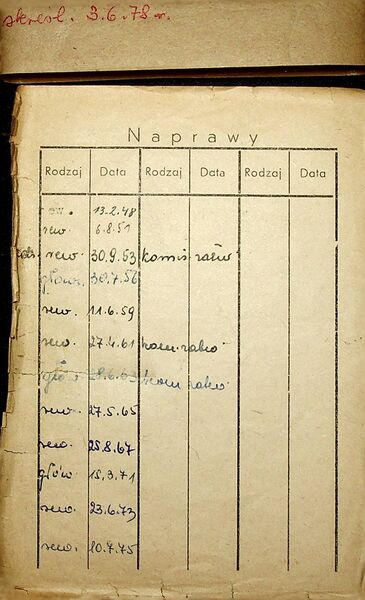 skreśl. 3.6.78 r.
Naprawy
Rodzaj Data Rodzaj Data Rodzaj Data
rew. 13.2.48
rew. 6.8.51
rew. 30.9.53
główn. 30.7.56
rew. 11.6.59
rew. 27.4.61
głów 28.6.63
rew. 27.5.65
rew. 25.8.67
głów. 15.3.71
rew. 23.6.73
rew. 10.7.75